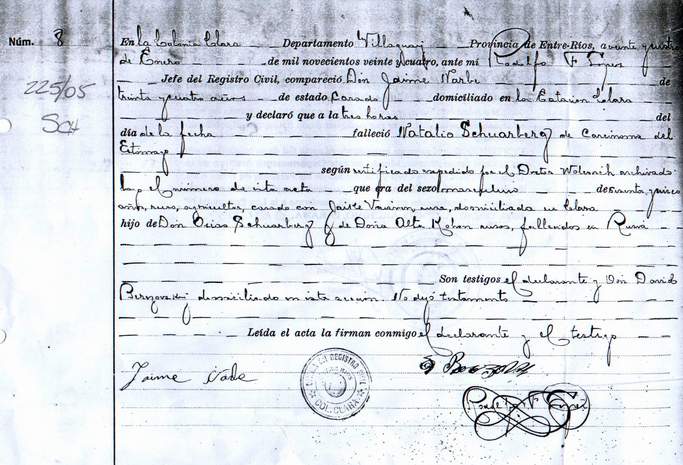 Núm. 8
225/05
Sch
En la Colonia Clara Departamento Villaguay Provincia de Entre-Rios, a veinte y cuatro
de Enero de mil novecientos veinte y cuatro, ante mi Rodolfo F López
Jefe del Registro Civil, compareció Don Jaime Narbe de
treinta y cuatro años de estado Casado domiciliado en la Estacion Clara
y declaró que a la tres horas del
día de la fecha falleció Natalio Schuarberg de Carcinoma del
Estomago
según certificado expedido por el Doctor archivado
bajo el número de esta acta que era del sexo masculino de
años, ruso, agricultor, casado con rusa, domiciliada en Clara
hijo de Don Schuarberg y de Doña Kohon rusos, fallecidos en Rusia
Son testigos el declarante y Don David
domiciliado en esta seccion No dejó testamento
Leída el acta la firman conmigo el declarante y el testigo
Jaime
REGISTRO CIVIL
COL. CLARA